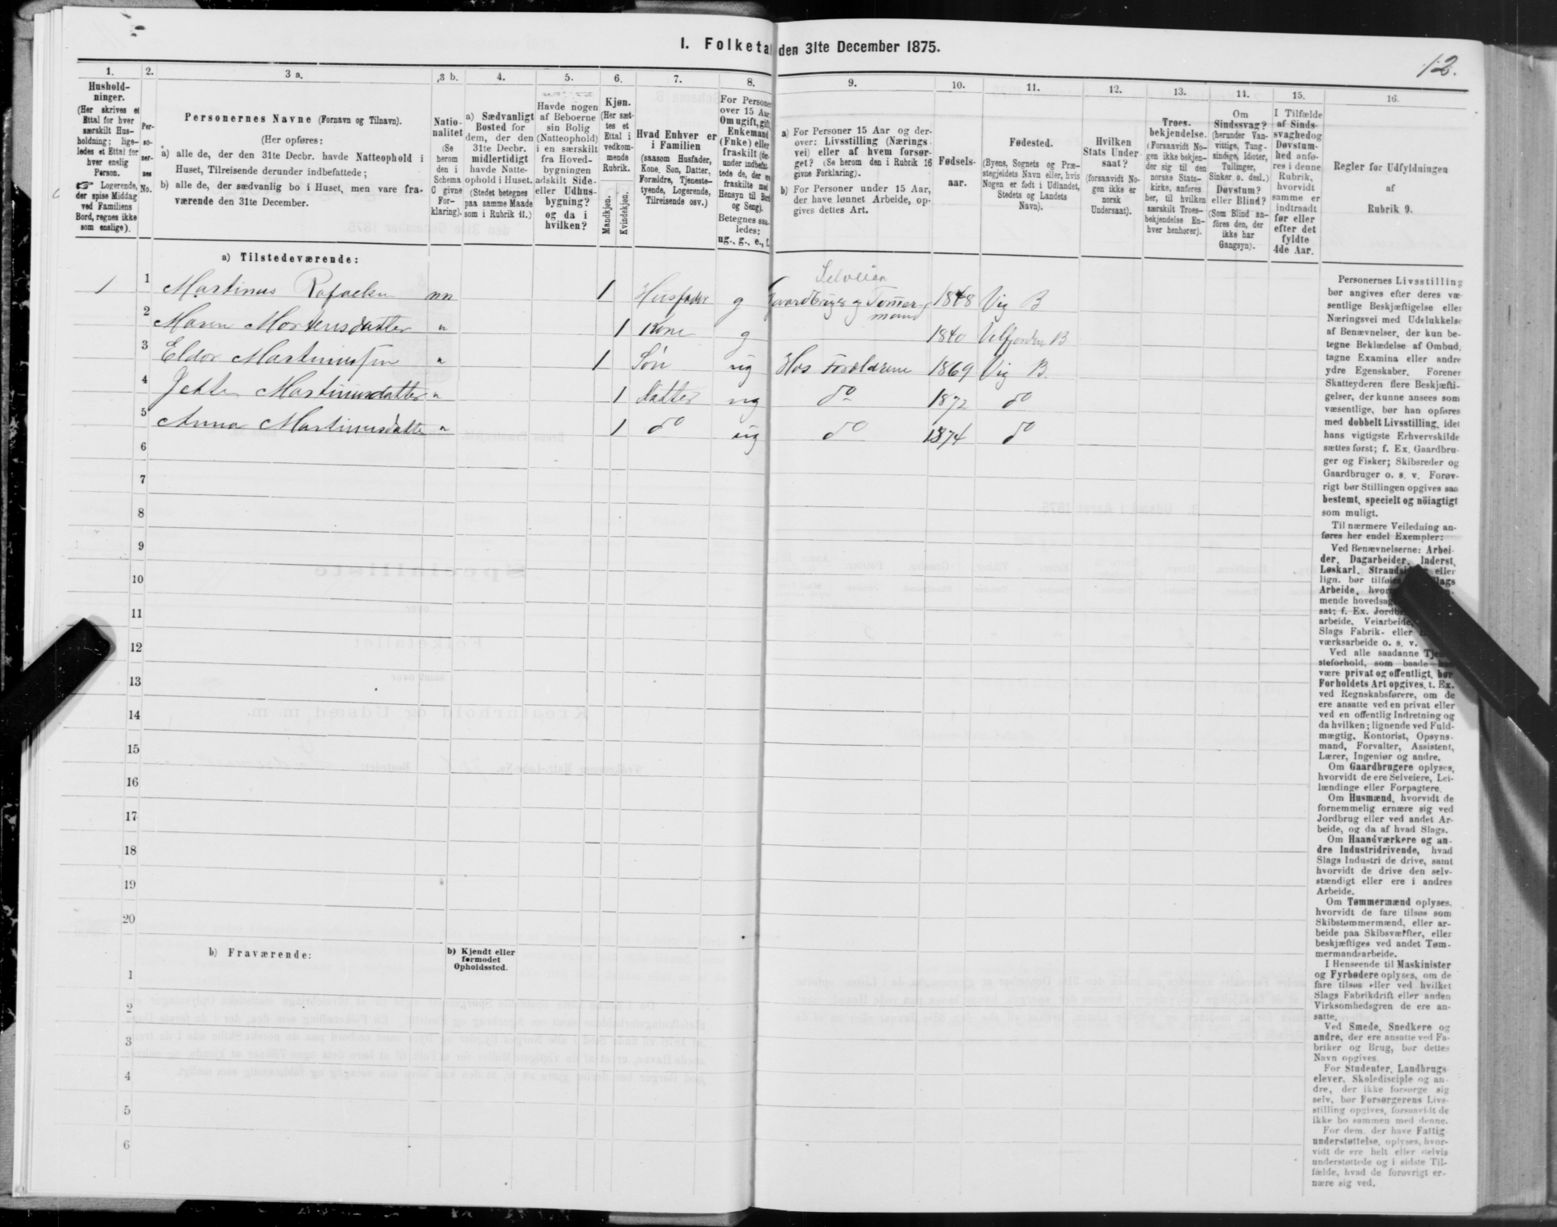 I. Folketal den 31te December 1875.
12.
1.
Hushold-
ninger.
(Her skrives et
Ettal for hver
særskilt Hus-
holdning; lige-
ledes et Ettal for
hver enslig
Person.
☞ Logerende,
der spise Middag
ved Familiens
Bord, regnes ikke
som enslige).
2.
Per-
so-
ner-
nes
No.
3 a.
Personernes Navne (Fornavn og Tilnavn).
(Her opføres:
a) alle de, der den 31te Decbr. havde Natteophold i
Huset, Tilreisende derunder indbefattede;
b) alle de, der sædvanlig bo i Huset, men vare fra-
værende den 31te December.
3 b.
Natio-
nalitet
(Se
herom
den i
Schema
C givne
For-
klaring).
4.
a) Sædvanligt
Bosted for
dem, der den
31te Decbr.
midlertidigt
havde Natte-
ophold i Huset.
(Stedet betegnes
paa samme Maade
som i Rubrik 11.)
5.
Havde nogen
af Beboerne
sin Bolig
(Natteophold)
i en særskilt
fra Hoved-
bygningen
adskilt Side-
eller Udhus-
bygning?
og da i
hvilken?
6.
Kjøn.
(Her sæt-
tes et
Ettal i
vedkom-
mende
Rubrik.
Mandkjøn.
Kvindekjøn.
7.
Hvad Enhver er
i Familien
(saasom Husfader,
Kone, Søn, Datter,
Forældre, Tjeneste-
tyende, Logerende,
Tilreisende osv.)
8.
For Personer
over 15 Aar
Om ugift, gift,
Enkemand
(Enke) eller
fraskilt (der-
under indbefat-
tede de, der ere
fraskilte med
Hensyn til Bord
og Seng).
Betegnes saa-
ledes:
ug., g., e., f.
9.
a) For Personer 15 Aar og der-
over: Livsstilling (Nærings-
vei) eller af hvem forsør-
get? (Se herom den i Rubrik 16
givne Forklaring).
b) For Personer under 15 Aar,
der have lønnet Arbeide, op-
gives dettes Art.
10.
Fødsels-
aar.
11.
Fødested.
(Byens, Sognets og Præ-
stegjeldets Navn eller, hvis
Nogen er født i Udlandet,
Stedets og Landets
Navn).
12.
Hvilken
Stats Under-
saat?
(forsaavidt No-
gen ikke er
norsk
Undersaat).
13.
Troes-
bekjendelse.
(Forsaavidt No-
gen ikke bekjen-
der sig til den
norske Stats-
kirke, anføres
her, til hvilken
særskilt Troes-
bekjendelse En-
hver henhører).
14.
Om
Sindssvag?
(herunder Van-
vittige, Tung-
sindige, Idioter,
Tullinger,
Sinker o. desl.)
Døvstum?
eller Blind?
(Som Blind an-
føres den, der
ikke har
Gangsyn).
15.
I Tilfælde
af Sinds-
svaghed og
Døvstum-
hed anfø-
res i denne
Rubrik,
hvorvidt
samme er
indtraadt
før eller
efter det
fyldte
4de Aar.
16.
Regler for Udfyldningen
af
Rubrik 9.
a) Tilstedeværende:
1 1 Martinus Rafaelsen nn 1 Husfader g Selveier Gaardbruger og Tømmermand 1848 Vig B
2 Maren Mortensdatter " 1 Kone g 1840 Velfjorden B
3 Eldor Martinussen " 1 Søn ug Hos Forældrene 1869 Vig B.
4 Jette Martinusdatter " 1 Datter ug do 1872 do
5 Anna Martinusdatter " 1 do ug do 1874 do
6
7
8
9
10
11
12
13
14
15
16
17
18
19
20
b) Fraværende:
b) Kjendt eller
formodet
Opholdssted.
1
2
3
4
5
6
Personernes Livsstilling
bør angives efter deres væ-
sentlige Beskjæftigelse eller
Næringsvei med Udelukkelse
af Benævnelser, der kun be-
tegne Beklædelse af Ombud,
tagne Examina eller andre
ydre Egenskaber. Forener
Skatteyderen flere Beskjæfti-
gelser, der kunne ansees som
væsentlige, bør han opføres
med dobbelt Livsstilling, idet
hans vigtigste Erhvervskilde
sættes først; f. Ex. Gaardbru-
ger og Fisker; Skibsreder og
Gaardbruger o. s. v. Forøv-
rigt bør Stillingen opgives saa
bestemt, specielt og nøiagtigt
som muligt.
Til nærmere Veiledning an-
føres her endel Exempler:
Ved Benævnelserne: Arbei-
der, Dagarbeider, Inderst,
Løskarl, Strandsidder eller
lign. bør tilføies
Arbeide, hvor
mende hovedsag
sat; f. Ex. Jordbr
arbeide, Veiarbeide,
Slags Fabrik- eller
værksarbeide o. s. v.
Ved alle saadanne Tjene-
steforhold, som baade kan
være privat og offentligt, bør
Forholdets Art opgives, t. Ex.
ved Regnskabsførere, om de
ere ansatte ved en privat eller
ved en offentlig Indretning og
da hvilken; lignende ved Fuld-
mægtig, Kontorist, Opsyns-
mand, Forvalter, Assistent,
Lærer, Ingeniør og andre.
Om Gaardbrugere oplyses,
hvorvidt de ere Selveiere, Lei-
lændinge eller Forpagtere.
Om Husmænd, hvorvidt de
fornemmelig ernære sig ved
Jordbrug eller ved andet Ar-
beide, og da af hvad Slags.
Om Haandværkere og an-
dre Industridrivende, hvad
Slags Industri de drive, samt
hvorvidt de drive den selv-
stændigt eller ere i andres
Arbeide.
Om Tømmermænd oplyses,
hvorvidt de fare tilsøs som
Skibstømmermænd, eller ar-
beide paa Skibsværfter, eller
beskjæftiges ved andet Tøm-
mermandsarbeide.
I Henseende til Maskinister
og Fyrbødere oplyses, om de
fare tilsøs eller ved hvilket
Slags Fabrikdrift eller anden
Virksomhedsgren de ere an-
satte.
Ved Smede, Snedkere og
andre, der ere ansatte ved Fa-
briker og Brug, bør dettes
Navn opgives.
For Studenter, Landbrugs-
elever, Skoledisciple og an-
dre, der ikke forsørge sig
selv, bør Forsørgerens Livs-
stilling opgives, forsaavidt de
ikke bo sammen med denne.
For dem, der have Fattig-
understøttelse, oplyses, hvor-
vidt de ere helt eller delvis
understøttede og i sidste Til-
fælde, hvad de forøvrigt er-
nære sig ved.